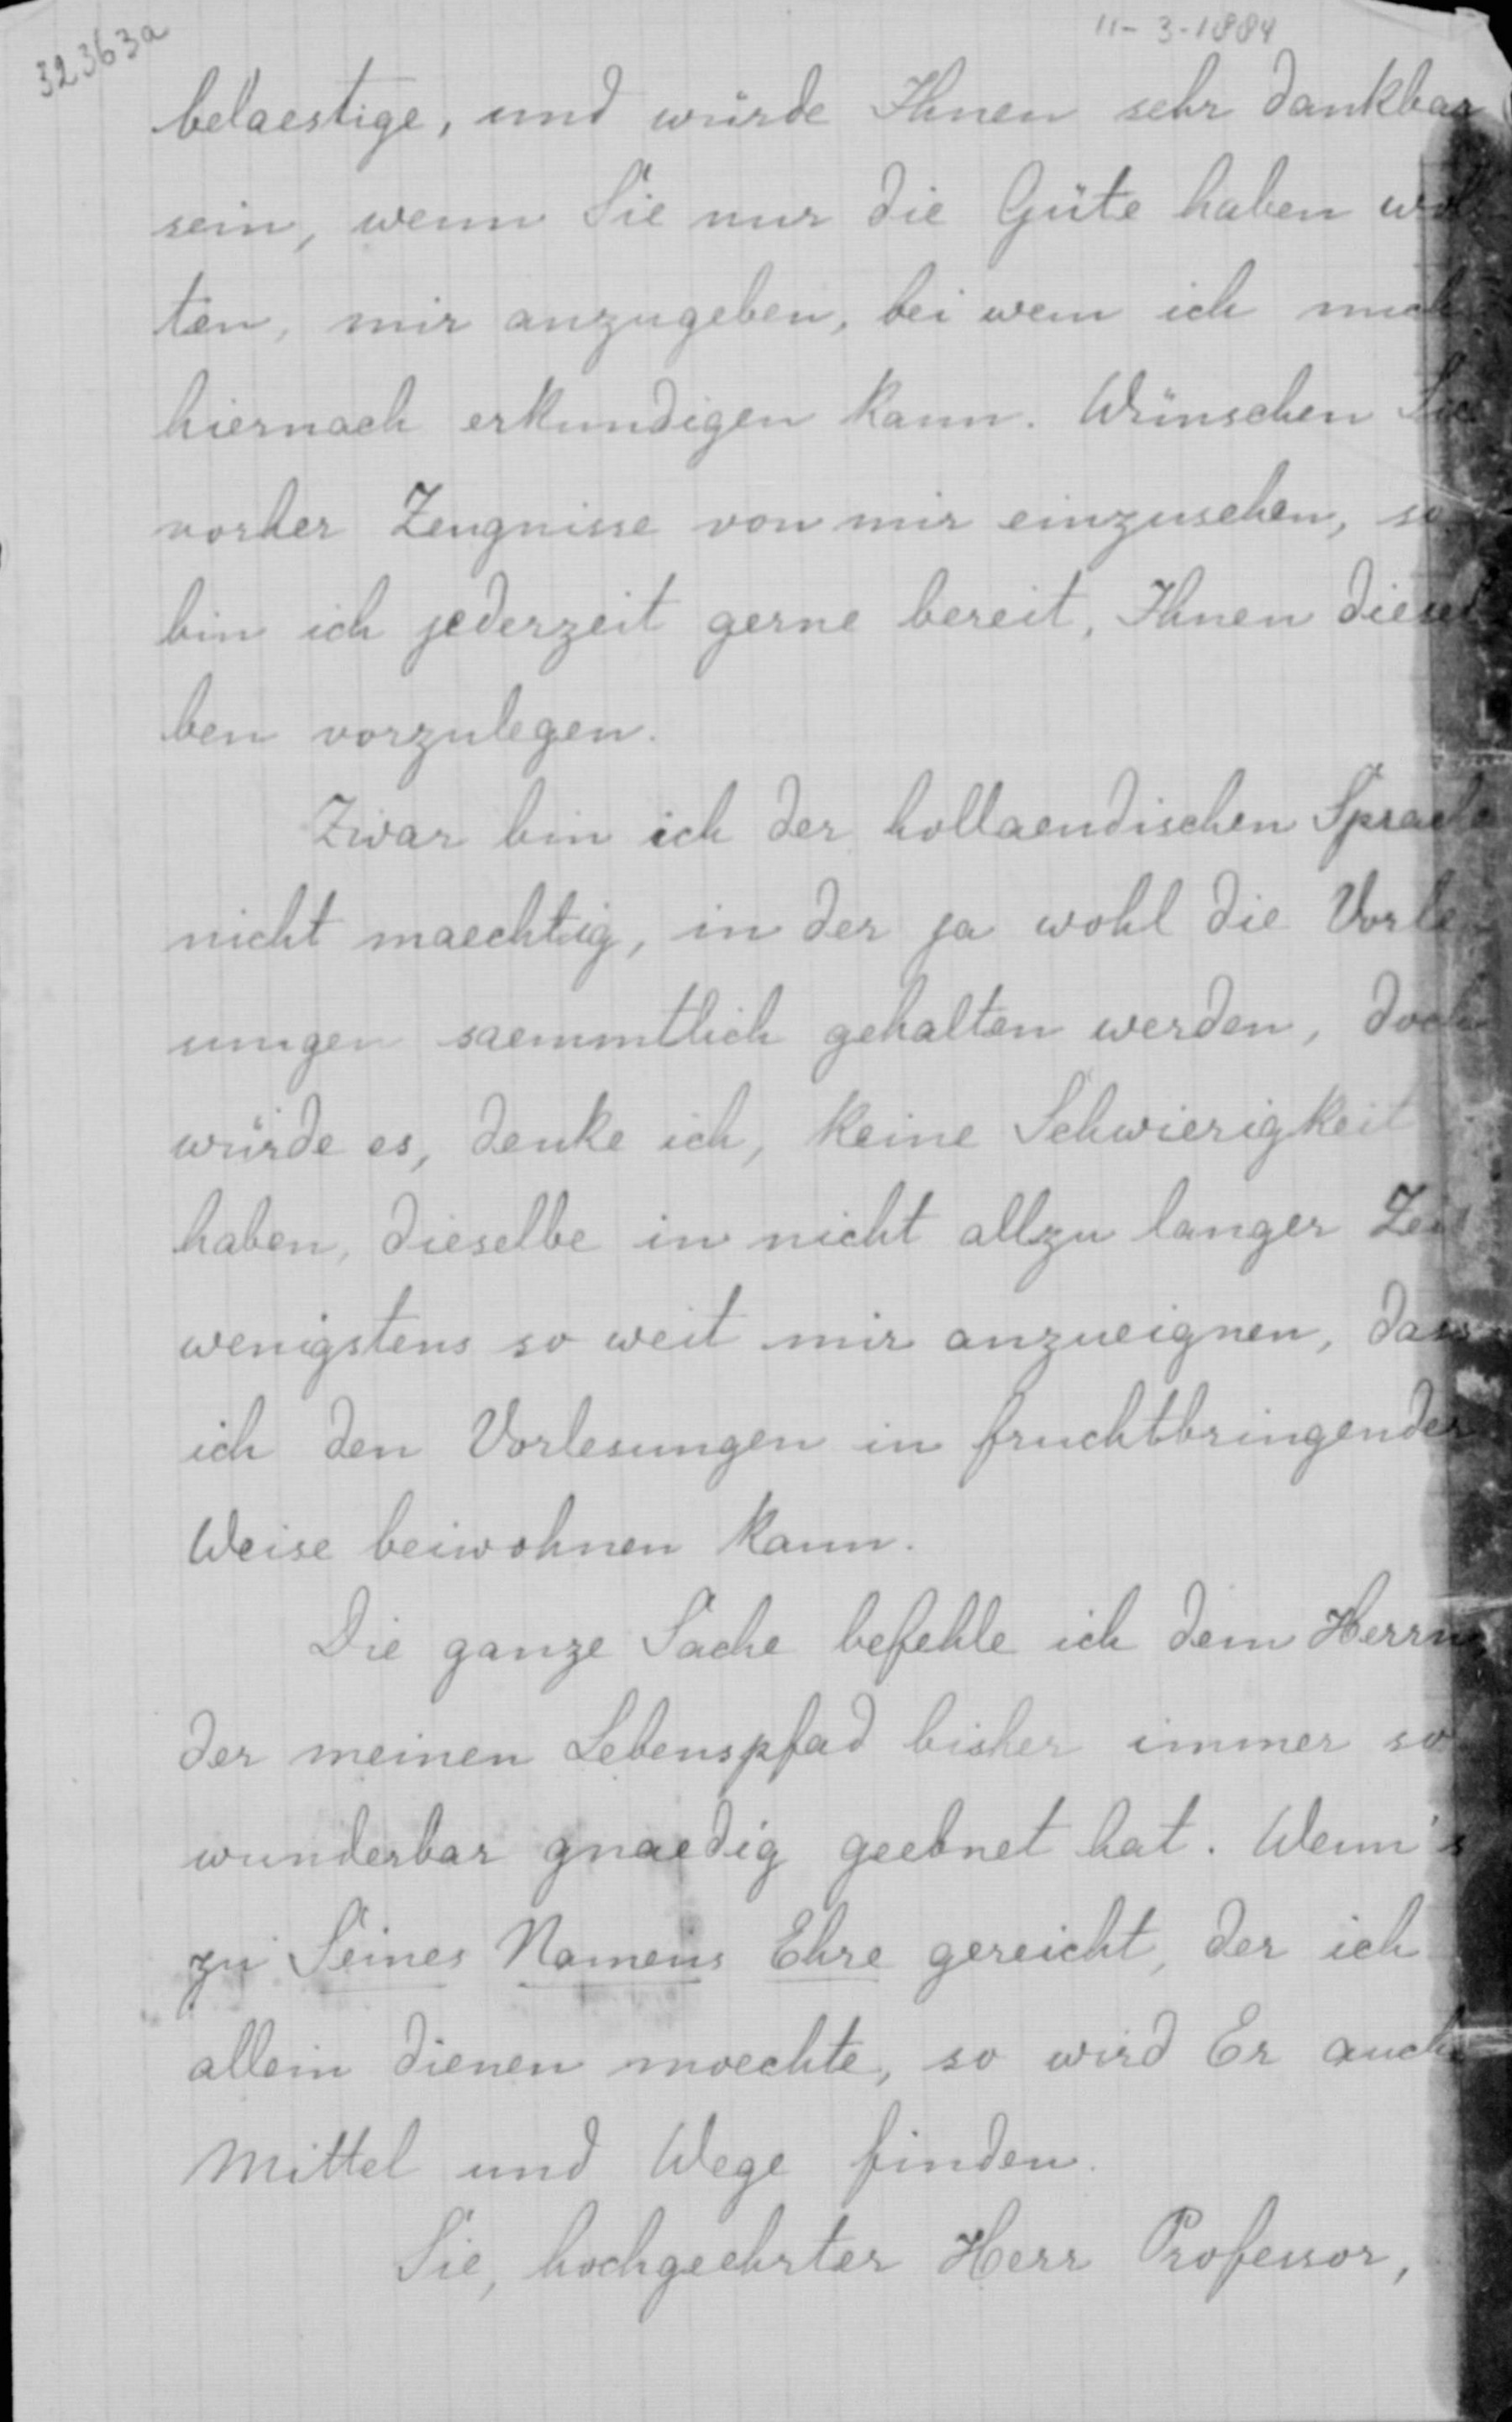 32363a
11-3-1884
belaestige, und würde Ihnen sehr dankbar
sein, wenn Sie nur die Güte haben wol
ten, mir anzugeben, bei wem ich mich
hiernach erkundigen kann. Wünschen Sie
vorher Zeugnisse von mir einzusehen, so
bin ich jederzeit gerne bereit, Ihnen diesel
ben vorzulegen.
Zwar bin ich der hollaendischen Sprache
nicht maechtig, in der ja wohl die Vorle
sungen saemmtlich gehalten werden, doch
würde es, denke ich, keine Schwierigkeit
haben, dieselbe in nicht allzu langer Zeit
wenigstens so weit mir anzueignen, dass
ich den Vorlesungen in fruchtbringender
Weise beiwohnen kann.
Die ganze Sache befehle ich dem Herrn,
der meinen Lebenspfad bisher immer so
wunderbar gnaedig geebnet hat. Wenn's
zu Seines Namens Ehre gereicht, der ich
allein dienen moechte, so wird Er auch
Mittel und Wege finden.
Sie, hochgeehrter Herr Professor,